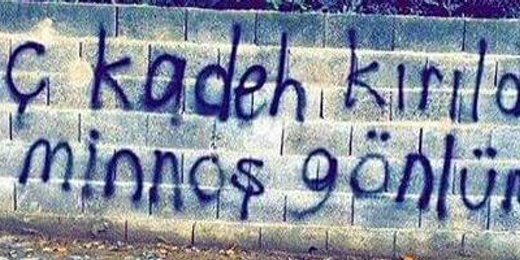 ç kadeh kırıld
minnoş gönlü